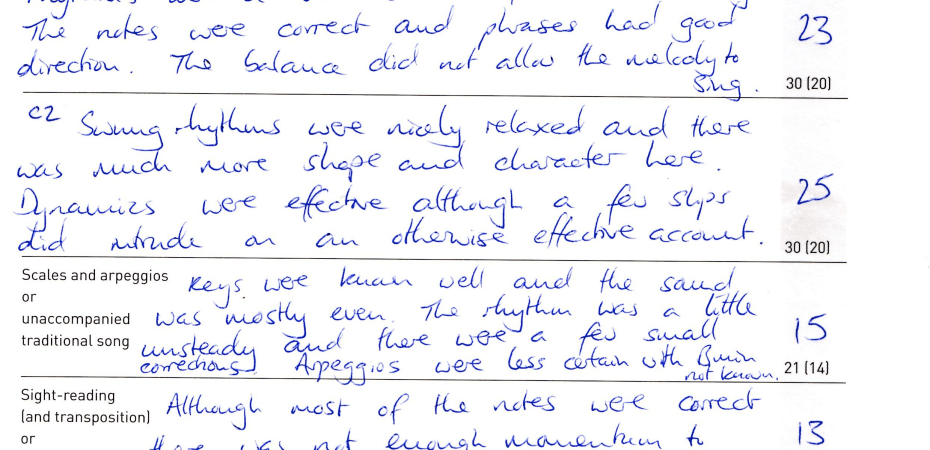 The notes were correct and phrases had good 23
direction. The balance did not allow the melody to
sing. 30 (20)
C2 Swung rhythms were nicely relaxed and there
was much more shape and character here.
Dynamics were effective although a few slips 25
did intrude on an otherwise effective account. 30 (20)
Scales and arpeggios
or
unaccompanied
traditional song
Keys were known well and the sound
was mostly even. The rhythm was a little
unsteady and there were a few small 15
corrections. Arpeggios were less certain with Bmin
not known. 21 (14)
Sight-reading
(and transposition)
or
Although most of the notes were correct
there was not enough momentum to 13